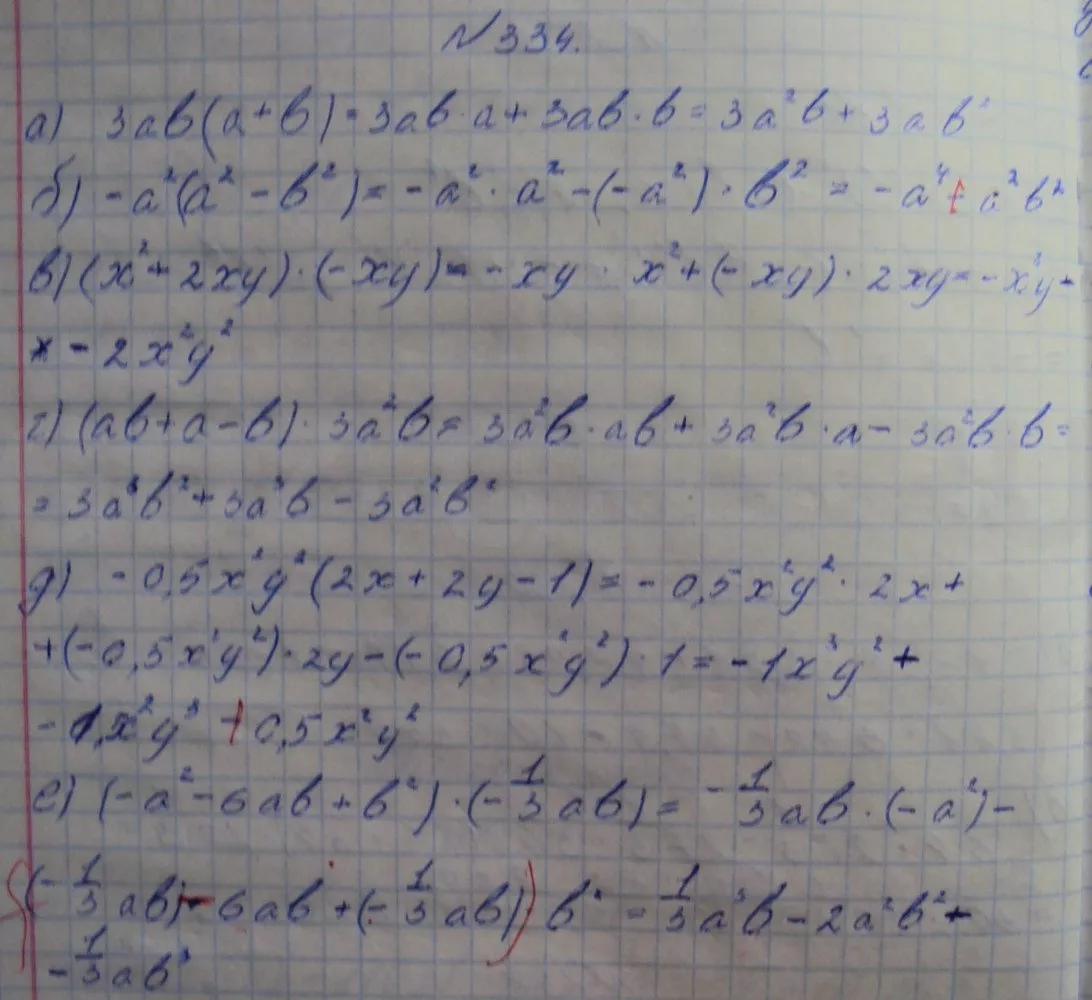 №334.
а) 3ab(a+b)=3ab·a+3ab·b=3a²b+3ab²
б) -a²(a²-b²)=-a²·a²-(-a²)·b²=-a⁴+a²b²
в) (x²+2xy)·(-xy)=-xy·x²+(-xy)·2xy=-x³y-
-2x²y²
г) (ab+a-b)·3a²b=3a²b·ab+3a²b·a-3a²b·b=
=3a³b²+3a³b-3a²b²
д) -0,5x²y²(2x+2y-1)=-0,5x²y²·2x+
+(-0,5x²y²)·2y-(-0,5x²y²)·1=-1x³y²+
-1x²y³+0,5x²y²
е) (-a²-6ab+b²)·(-1/3ab)=-1/3ab·(-a²)-
(-1/3ab)-6ab+(-1/3ab))b²=1/3a³b-2a²b²+
-1/3ab³